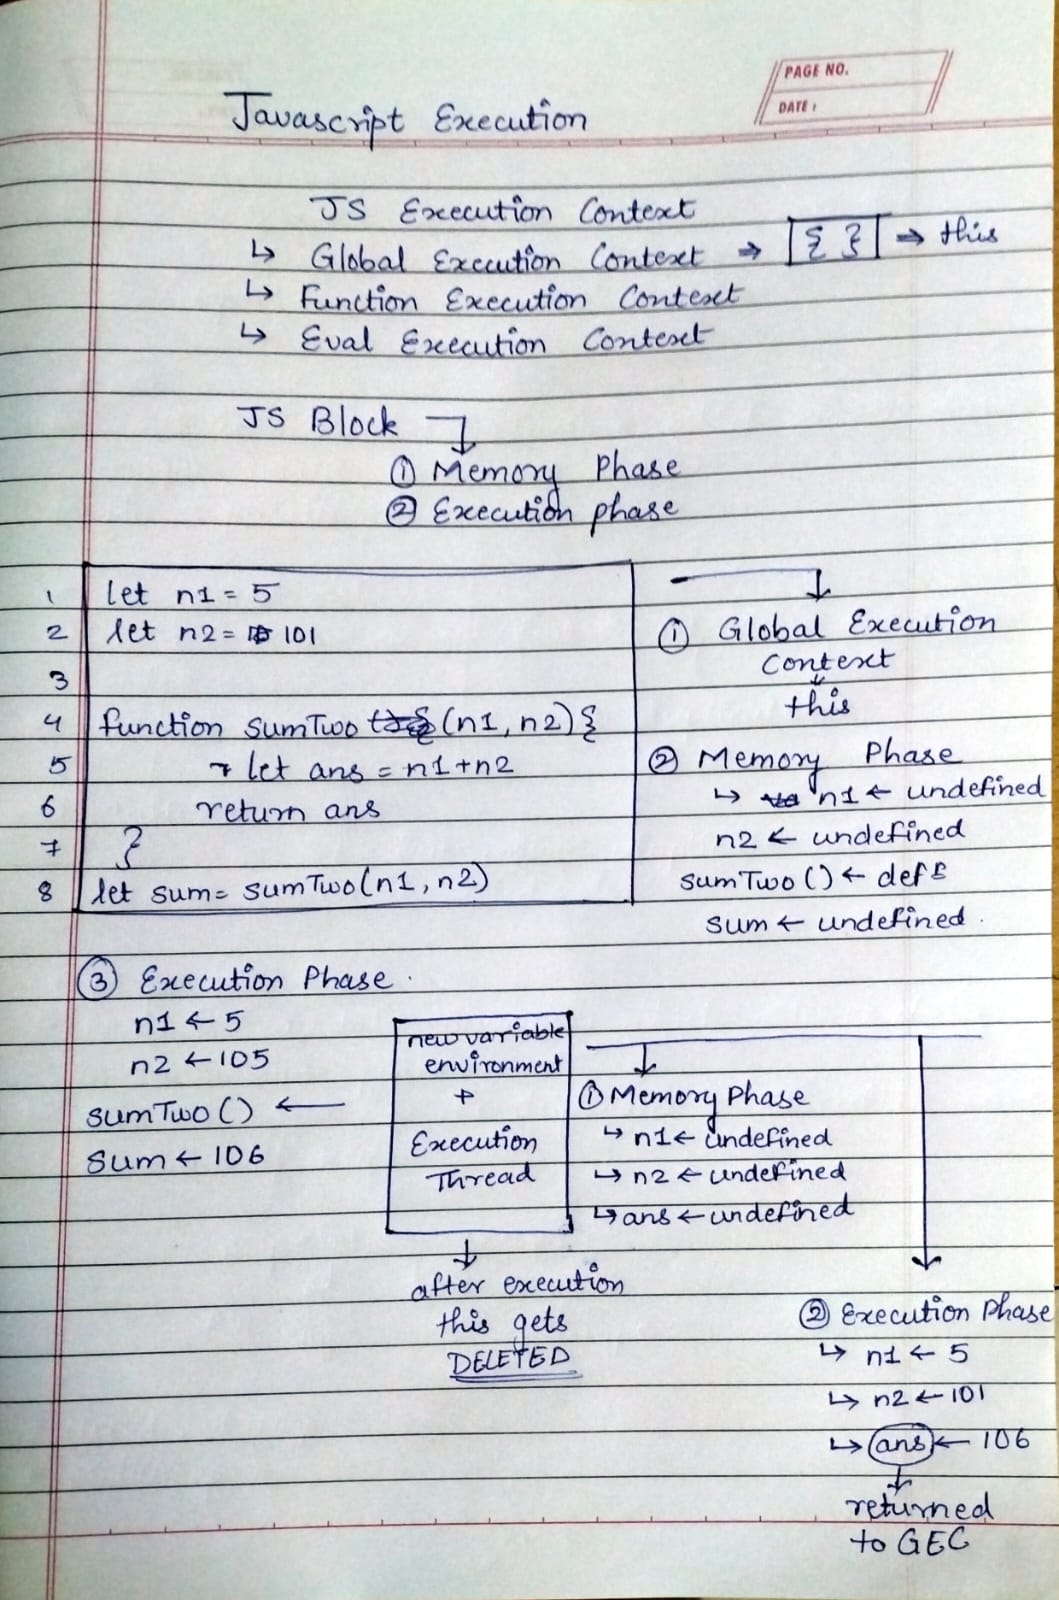 PAGE NO.
DATE :
Javascript Execution
JS Execution Context
↳ Global Execution Context ⇒ [{ }] ⇒ this
↳ Function Execution Context
↳ Eval Execution Context
JS Block
① Memory Phase
② Execution phase
1 let n1 = 5
2 let n2 = 101
3
4 function sumTwo (n1, n2) {
5 let ans = n1+n2
6 return ans
7 }
8 let sum = sumTwo(n1, n2)
① Global Execution
Context
↓
this
② Memory Phase
↳ n1 ← undefined
n2 ← undefined
sumTwo () ← defⁿ
sum ← undefined.
③ Execution Phase.
n1 ← 5
n2 ← 105
sumTwo () ←
sum ← 106
new variable
environment
+
Execution
Thread
↓
after execution
this gets
DELETED
① Memory Phase
↳ n1 ← undefined
↳ n2 ← undefined
↳ ans ← undefined
② Execution Phase
↳ n1 ← 5
↳ n2 ← 101
↳ ans ← 106
↓
returned
to GEC